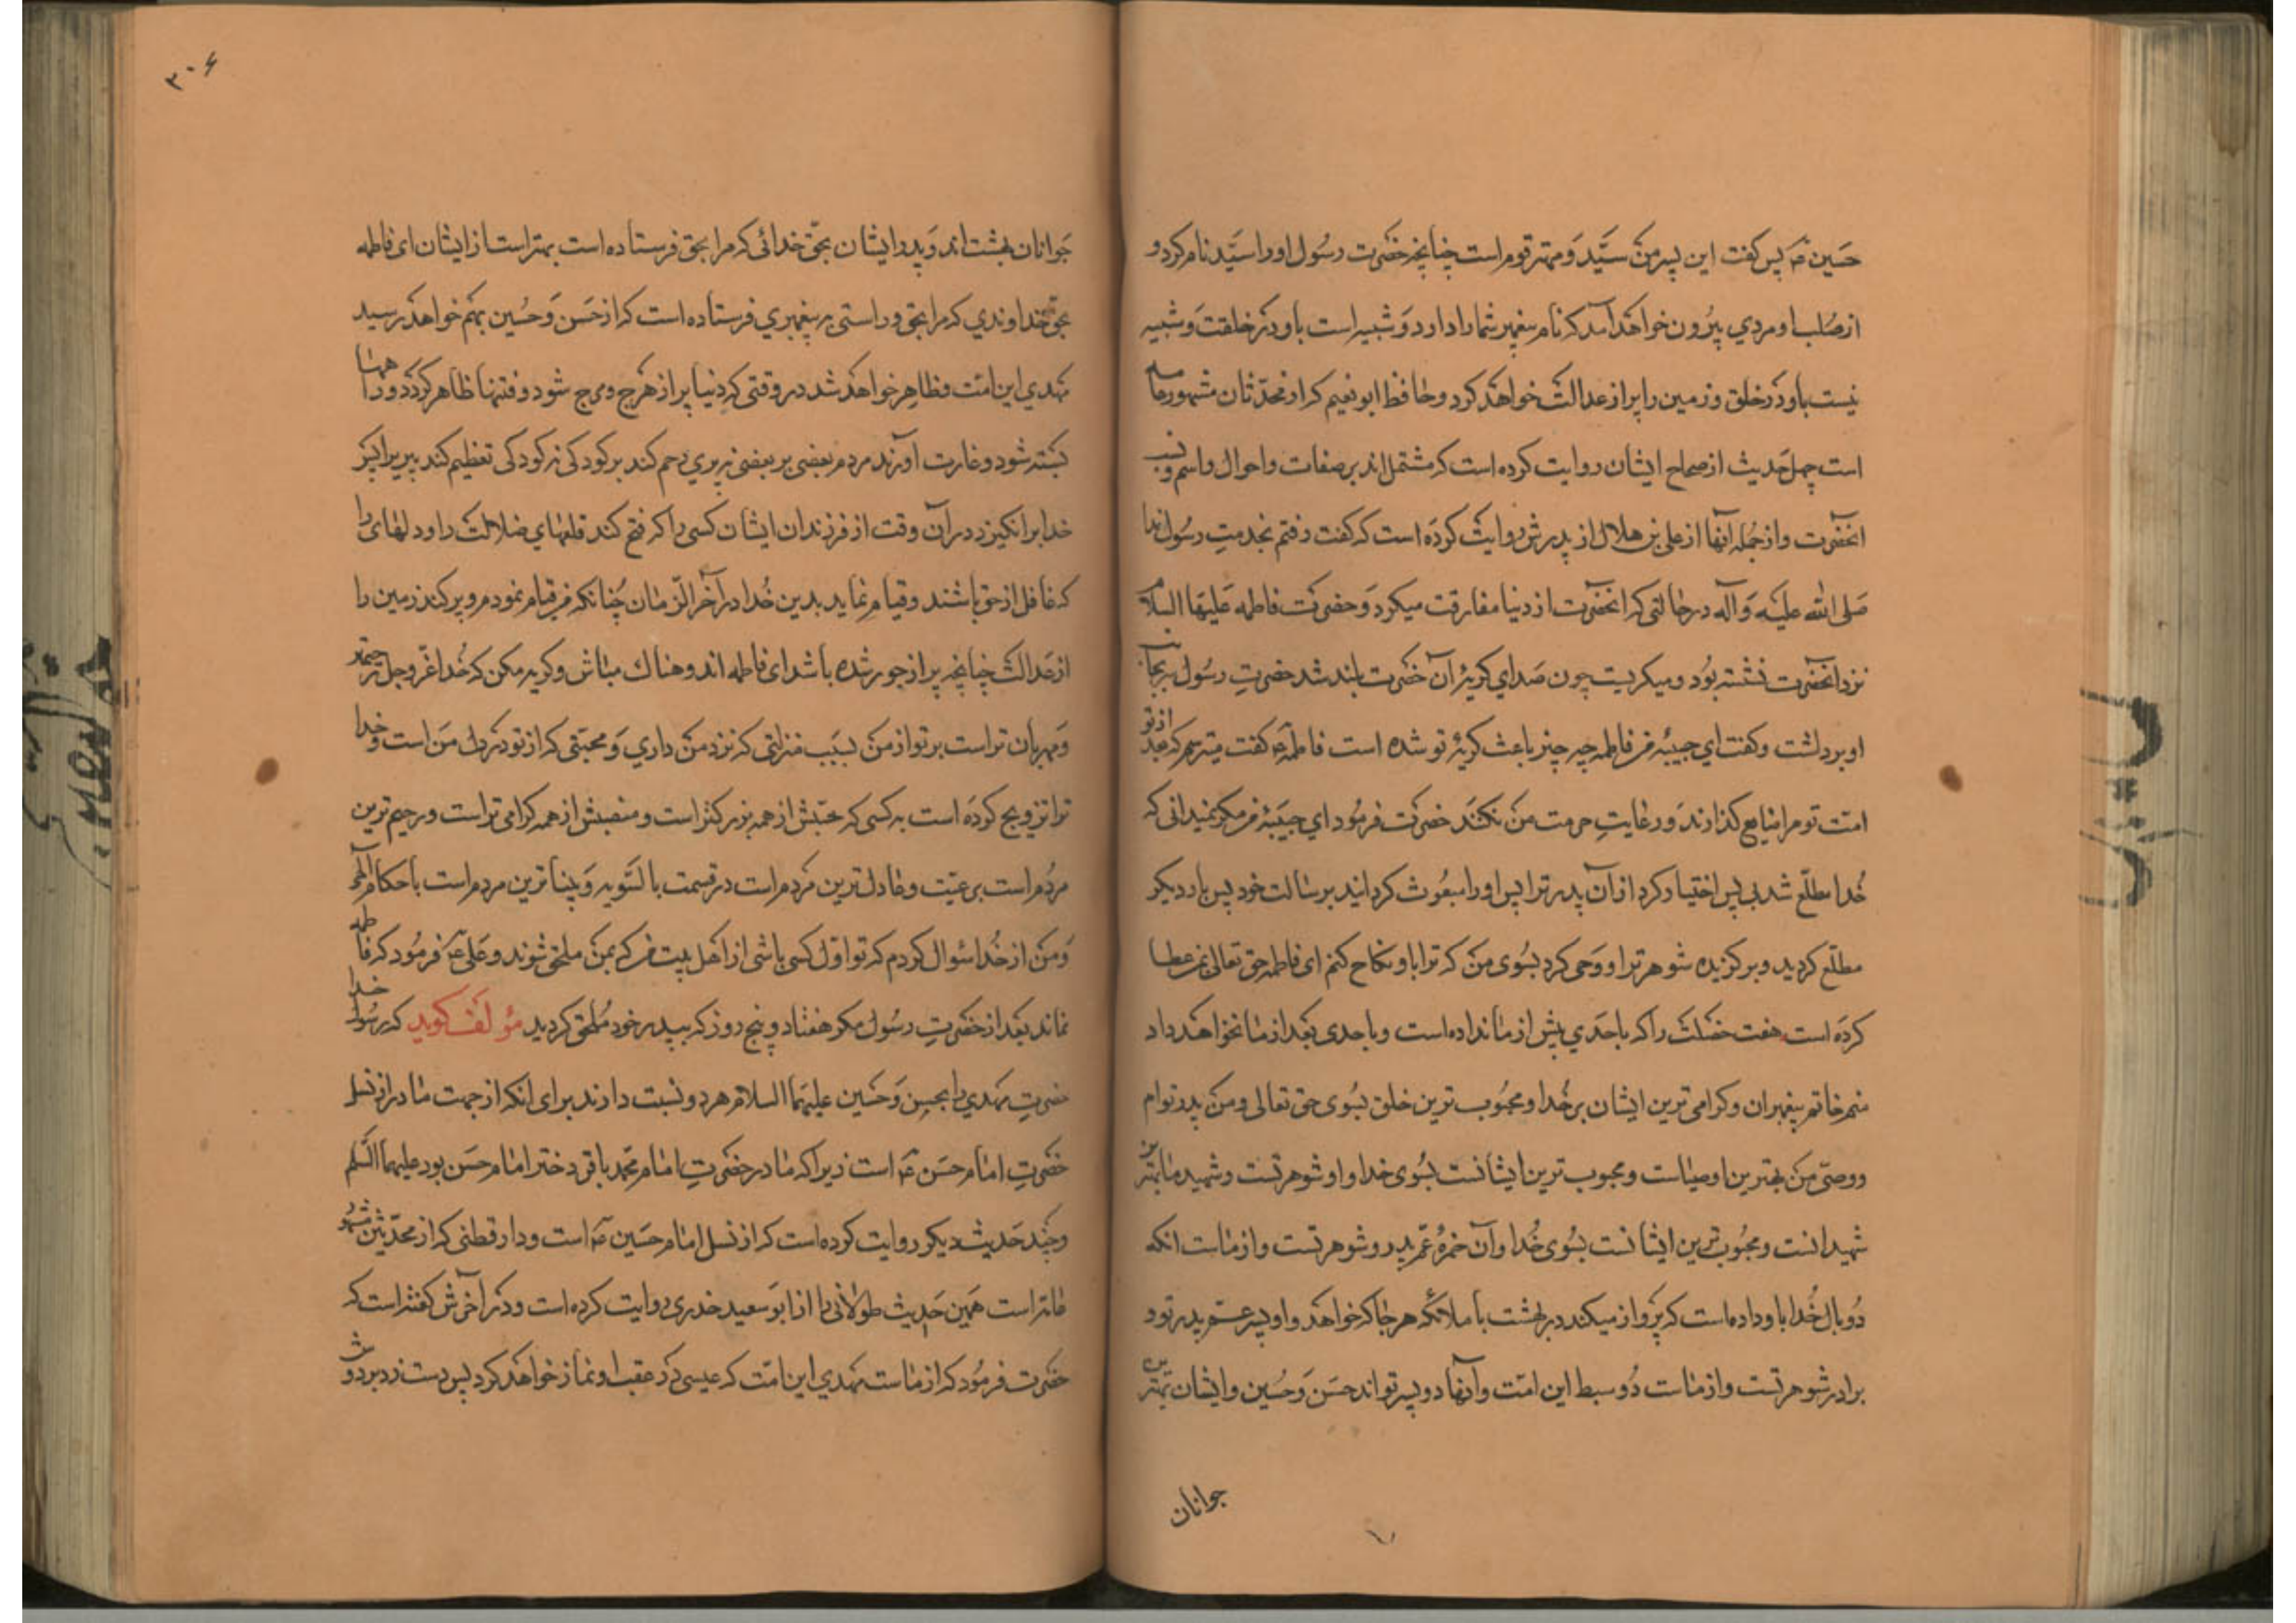 حسین ع پس گفت این پسر من سیّد و مهتر قوم است چنانچه حضرت رسول او را سیّد نام کرد و
از صلب او مردی بیرون خواهد آمد که نام پیغمبر شما را دارد و شبیه است باو در خلقت و شبیه
نیست باو در خلق و زمین را پر از عدالت خواهد کرد و حافظ ابو نعیم که از محدّثان مشهور عامه
است چهل حدیث از صحاح ایشان روایت کرده است که مشتمل‌اند بر صفات و احوال و اسم و نسب
آنحضرت و از جمله آنها از علی بن هلال از پدرش روایت کرده است که گفت رفتم بخدمت رسول خدا
صلی الله علیه و آله در حالتی که آنحضرت از دنیا مفارقت میکرد و حضرت فاطمه علیها السلام
نزد آنحضرت نشسته بود و میگریست چون صدای گریهٔ آن حضرت بلند شد حضرت رسول سر بجانب
او برداشت و گفت ای حبیبهٔ من فاطمه چه چیز باعث گریهٔ تو شده است فاطمه ع گفت میترسم که بعد از تو
امّت تو مرا ضایع گذارند و رعایت حرمت من نکنند حضرت فرمود ای حبیبهٔ من مگر نمیدانی که
خدا مطلّع شد بر پس اختیار کرد از آن پدر ترا پس او را مبعوث گردانید برسالت خود پس بار دیگر
مطلّع گردید و برگزیده شوهر ترا و وحی کرد بسوی من که ترا باو نکاح کنم ای فاطمه حق تعالی بمن عطا
کرده است هفت خصلت را که باحدی پیش از ما نداده است و باحدی بعد از ما نخواهد داد
منم خاتم پیغمبران و گرامی ترین ایشان بر خدا و محبوب ترین خلق بسوی حق تعالی و من پدر توام
و وصیّ من بهترین اوصیاست و محبوب ترین ایشانست بسوی خدا و او شوهر تست و شهید ما بهترین
شهیدانست و محبوب ترین ایشانست بسوی خدا و آن حمزه عمّ پدر و شوهر تست و از ماست آنکه
دو بال خدا باو داده است که پرواز میکند در بهشت با ملائکه هر جا که خواهد و او پسر عم پدر تو و
برادر شوهر تست و از ماست دو سبط این امّت و آنها دو پسر تواند حسن و حسین و ایشان بهترین
جوانان
۳۰۶
جوانان بهشت‌اند و پدر ایشان بحقّ خدائی که مرا بحق فرستاده است بهتر است از ایشان ای فاطمه
بحقّ خداوندی که مرا بحق و راستی به پیغمبری فرستاده است که از حسن و حسین بهم خواهد رسید
مهدی این امّت و ظاهر خواهد شد در وقتی که دنیا پر از هرج و مرج شود و فتنها ظاهر گردد و راهها
بسته شود و غارت آورند مردم بعضی بر بعضی نه پیری رحم کند بر کودکی نه کودکی تعظیم کند پیر را پس
خدا برانگیزد در آن وقت از فرزندان ایشان کسی را که فتح کند قلعهای ضلالت را و دلهای را
که غافل از حق باشند و قیام نماید بدین خدا در آخر الزمان چنانکه من قیام نمودم و پر کند زمین را
از عدالت چنانچه پر از جور شده باشد ای فاطمه اندوهناک مباش و گریه مکن که خدا عزّ و جل رحیمتر
و مهربان تر است بر تو از من بسبب منزلتی که نزد من داری و محبّتی که از تو در دل من است و خدا
ترا تزویج کرده است به کسی که حسبش از همه بزرگتر است و منصبش از همه گرامی تر است و رحیم ترین
مردم است بر رعیّت و عادل ترین مردم است در قسمت بالسّویه و بینا ترین مردم است باحکام الهی
و من از خدا سؤال کردم که تو اوّل کسی باشی از اهل بیت من که بمن ملحق شوند و علی ع فرمود که فاطمه
نماند بعد از حضرت رسول مگر هفتاد و پنج روز که به پدر خود ملحق گردید مؤلف گوید که رسول خدا
حضرت مهدی را بحسن و حسین علیهما السلام هر دو نسبت دادند برای آنکه از جهت مادر از نسل
حضرت امام حسن ع است زیرا که مادر حضرت امام محمّد باقر دختر امام حسن بود علیهما السّلم
و چند حدیث دیگر روایت کرده است که از نسل امام حسین ع است و دار قطنی که از محدّثین مشهور
عامّه است همین حدیث طولانی را از ابو سعید خدری روایت کرده است و در آخرش گفته است که
حضرت فرمود که از ماست مهدی این امّت که عیسی در عقب او نماز خواهد کرد پس دست زد بر دوش